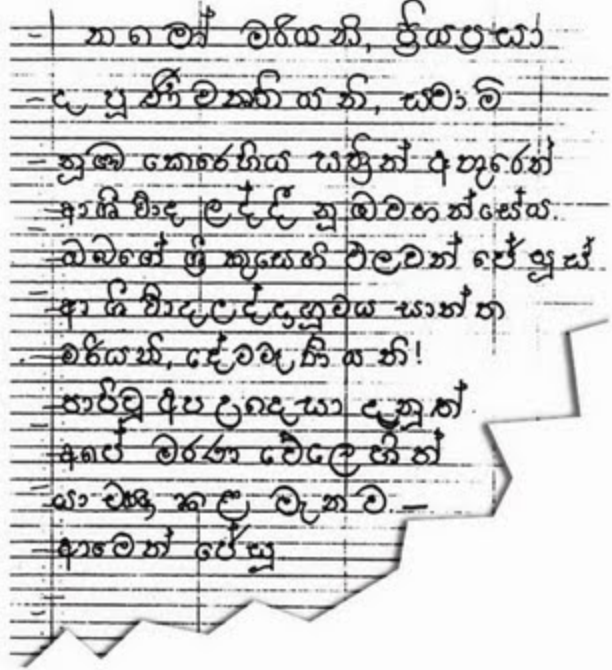 නමෝ මරියනි, ප්‍රියප්‍රසා
ද පූර්ණවත්තියනි, ස්වාමි
නුඹ කෙරෙහිය ස්ත්‍රීන් අතුරෙන්
ආශිර්වාද ලද්දී නුඹවහන්සේය.
ඔබගේ ශ්‍රී කුසෙහි ඵලවත් ජේසුස්
ආශිර්වාදලද්දාහුවය සාන්ත
මරියනි, දේවමෑණියනි!
පාපිවූ අප උදෙසා දැනුත්
අපේ මරණ වේලෙහිත්
යාච්ඤා කළ මැනව. —
ආමෙන් ජේසු